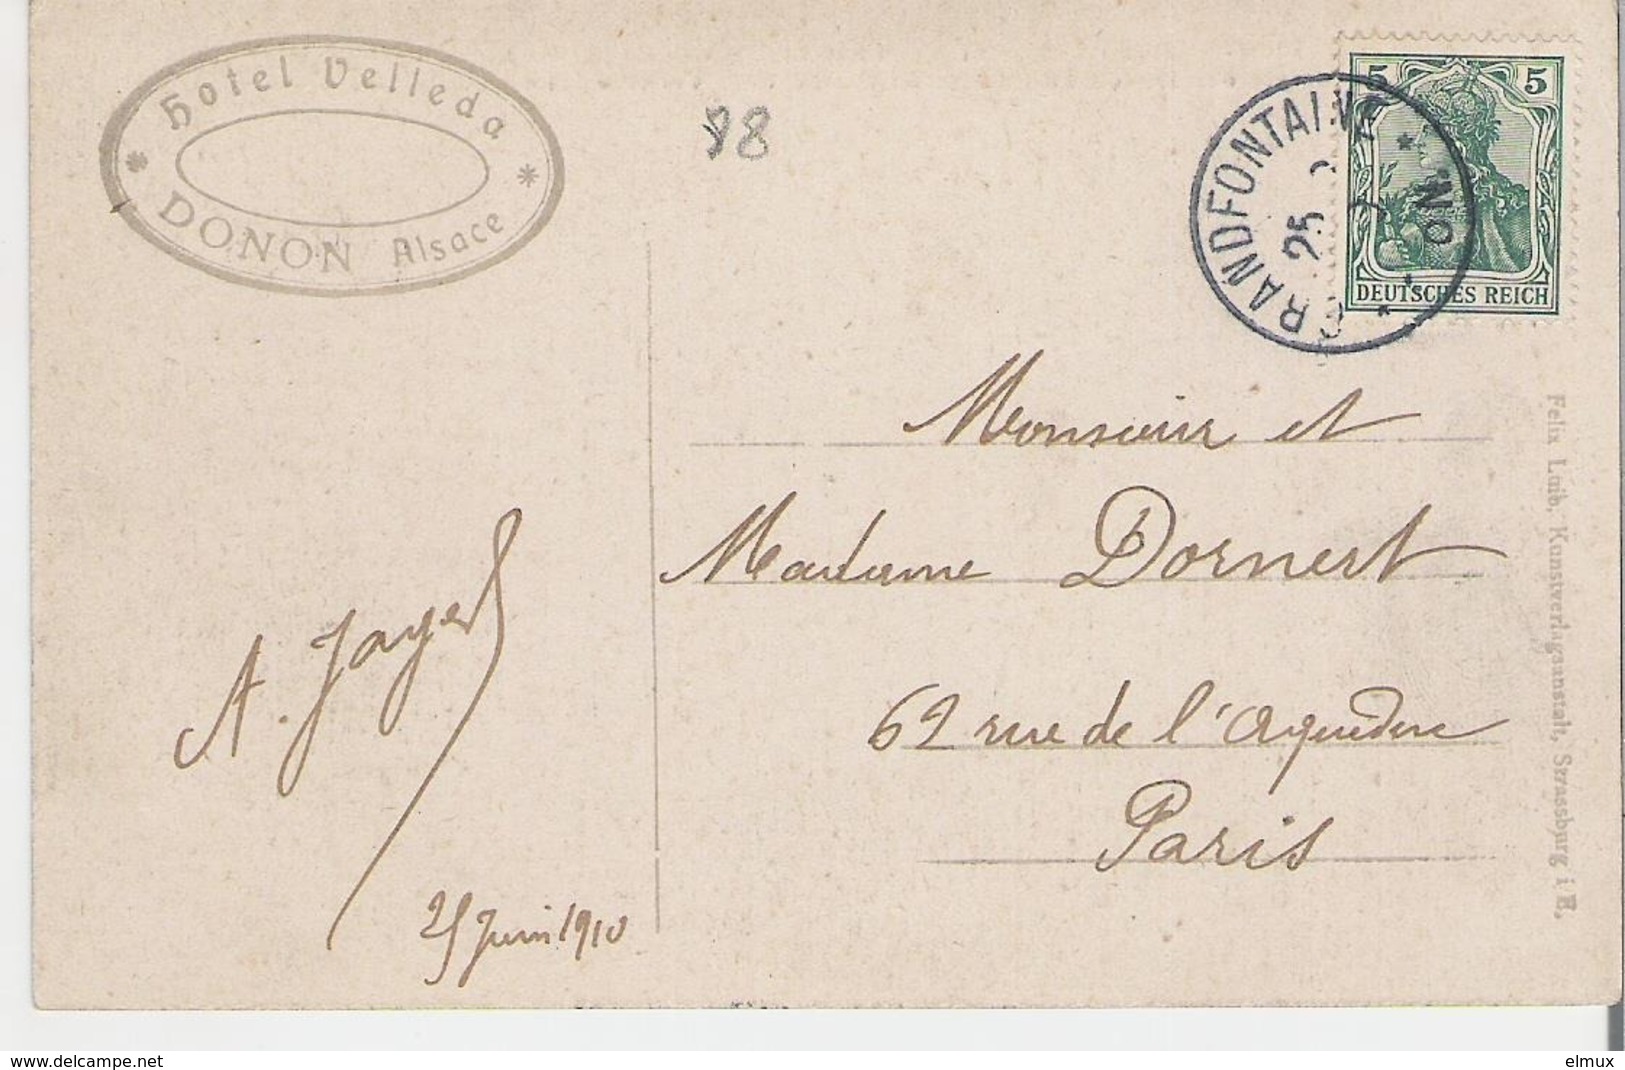 Hotel Velleda
DONON Alsace
88
GRANDFONTAINE
25
5 5
DEUTSCHES REICH
Monsieur et
Madame Dornert
62 rue de l'Aqueduc
Paris
A. Jayer
25 Juin 1910
Felix Luib, Kunstverlagsanstalt, Strassburg i. E.
delcampe.net
elmux